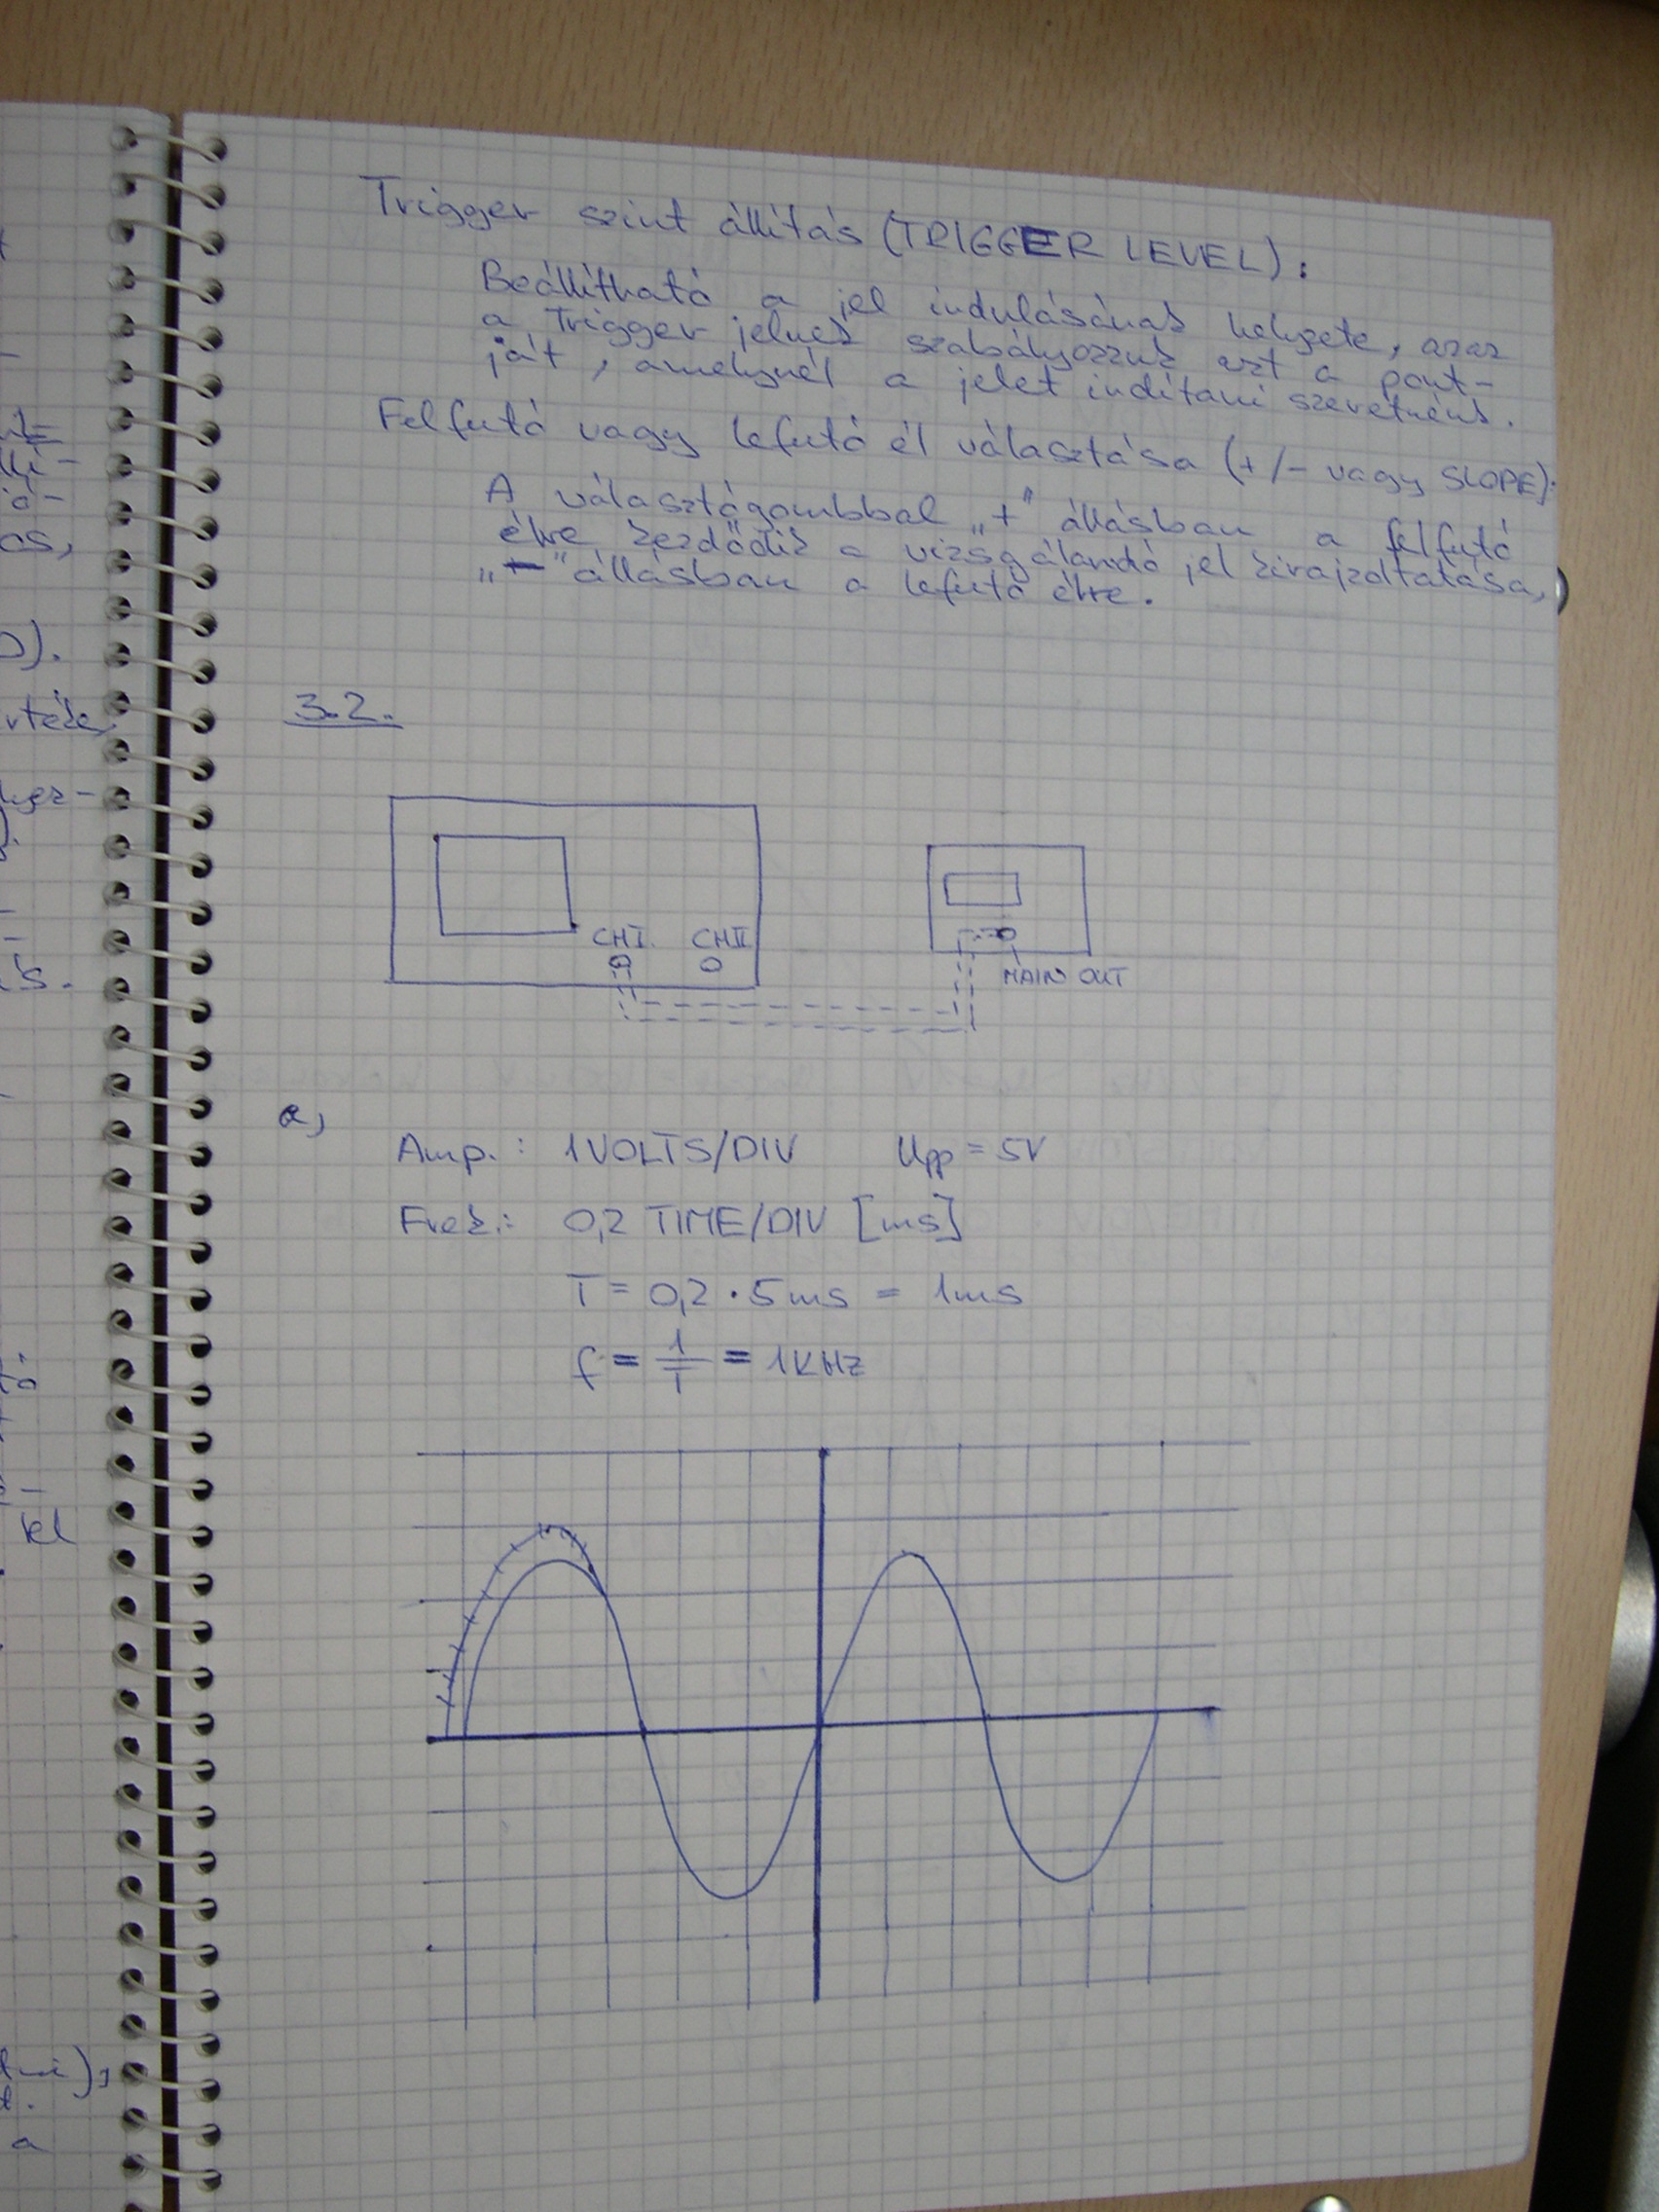 Trigger szint állítás (TRIGGER LEVEL):
Beállítható a jel indulásának helyzete, azaz
a Trigger jelnek szabályozzuk azt a pont-
ját, amelynél a jelet indítani szeretnénk.
Felfutó vagy lefutó él választása (+/- vagy SLOPE):
A választógombbal „+" állásban a felfutó
élre kezdődik a vizsgálandó jel kirajzoltatása,
„-" állásban a lefutó élre.
3.2.
CHI. CHII
MAIN OUT
a,
Amp.: 1VOLTS/DIV Upp = 5V
Frek.: 0,2 TIME/DIV [ms]
T = 0,2 · 5ms = 1ms
f = 1/T = 1KHz